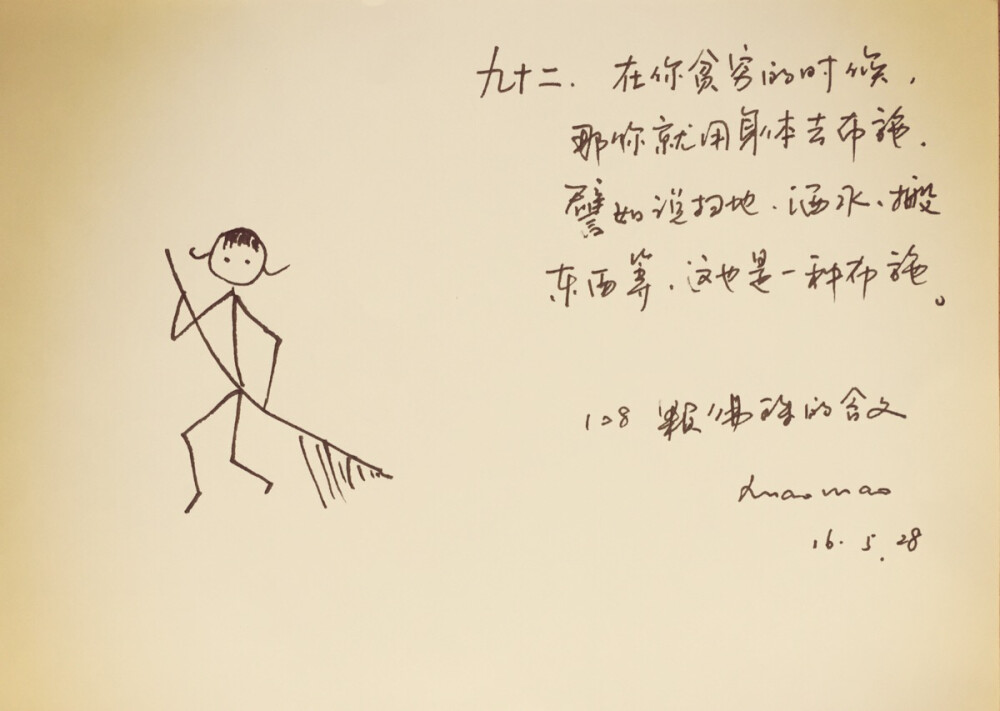 九十二. 在你贫穷的时候,
那你就用身体去布施.
譬如说扫地、洒水、搬
东西等,这也是一种布施。
128 颗佛珠的含义
maomao
16.5.28